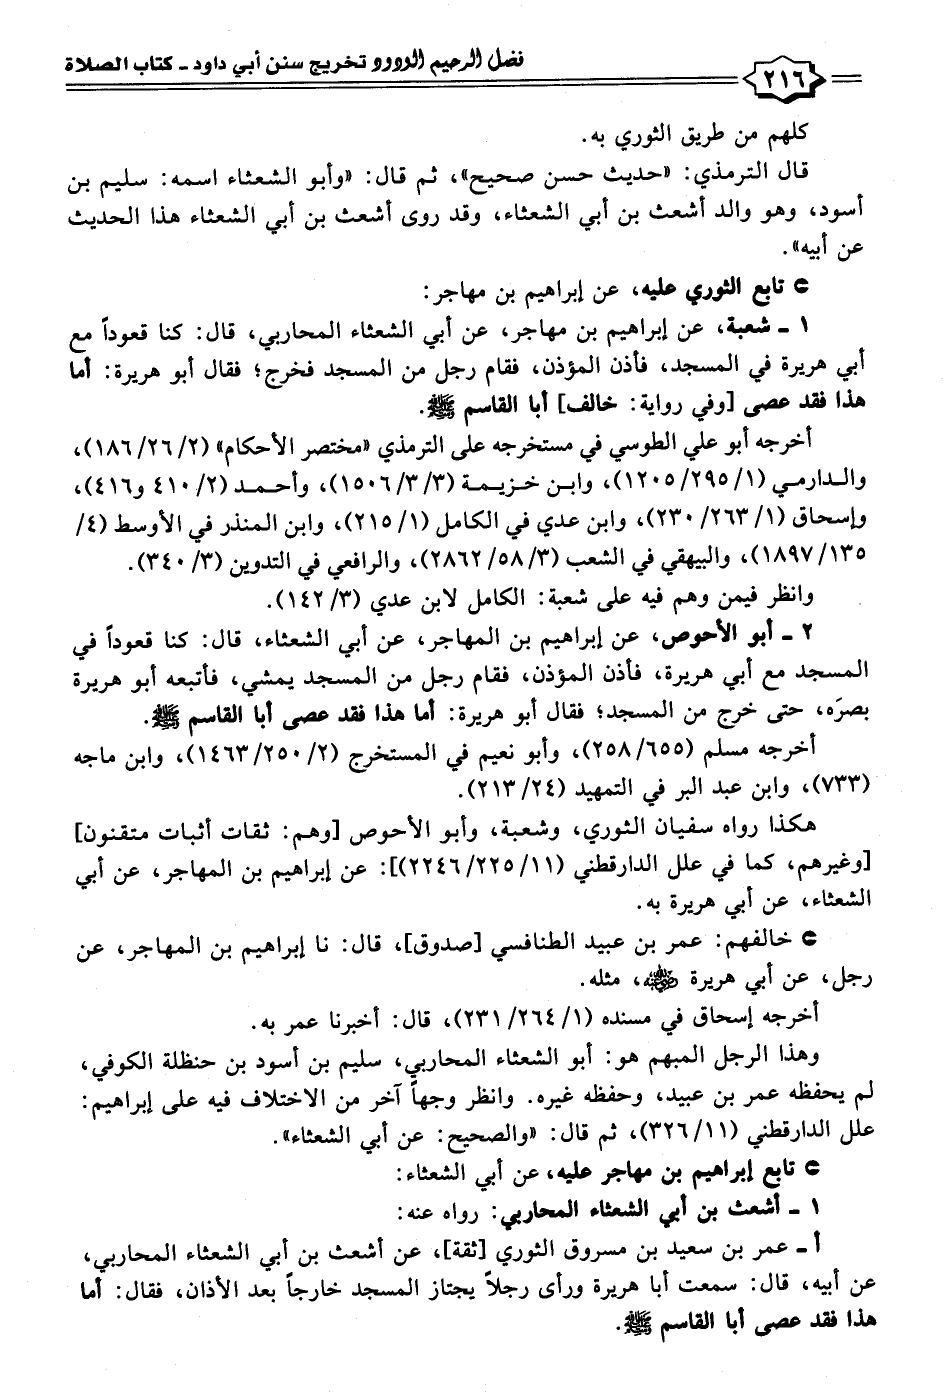 ٢١٦ فضل الرحيم الودود تخريج سنن أبي داود - كتاب الصلاة
كلهم من طريق الثوري به.
قال الترمذي: «حديث حسن صحيح»، ثم قال: «وأبو الشعثاء اسمه: سليم بن
أسود، وهو والد أشعث بن أبي الشعثاء، وقد روى أشعث بن أبي الشعثاء هذا الحديث
عن أبيه».
تابع الثوري عليه، عن إبراهيم بن مهاجر:
١ - شعبة، عن إبراهيم بن مهاجر، عن أبي الشعثاء المحاربي، قال: كنا قعوداً مع
أبي هريرة في المسجد، فأذن المؤذن، فقام رجل من المسجد فخرج؛ فقال أبو هريرة: أما
هذا فقد عصى [وفي رواية: خالف] أبا القاسم ﷺ.
أخرجه أبو علي الطوسي في مستخرجه على الترمذي «مختصر الأحكام» (٢/ ٢٦/ ١٨٦)،
والدارمي (١/ ٢٩٥/ ١٢٠٥)، وابن خزيمة (٣/ ٣/ ١٥٠٦)، وأحمد (٢/ ٤١٠ و٤١٦)،
وإسحاق (١/ ٢٦٣/ ٢٣٠)، وابن عدي في الكامل (١/ ٢١٥)، وابن المنذر في الأوسط (٤/
١٣٥/ ١٨٩٧)، والبيهقي في الشعب (٣/ ٥٨/ ٢٨٦٢)، والرافعي في التدوين (٣/ ٣٤٠).
وانظر فيمن وهم فيه على شعبة: الكامل لابن عدي (٣/ ١٤٢).
٢ - أبو الأحوص، عن إبراهيم بن المهاجر، عن أبي الشعثاء، قال: كنا قعوداً في
المسجد مع أبي هريرة، فأذن المؤذن، فقام رجل من المسجد يمشي، فأتبعه أبو هريرة
بصرَه، حتى خرج من المسجد؛ فقال أبو هريرة: أما هذا فقد عصى أبا القاسم ﷺ.
أخرجه مسلم (٦٥٥/ ٢٥٨)، وأبو نعيم في المستخرج (٢/ ٢٥٠/ ١٤٦٣)، وابن ماجه
(٧٣٣)، وابن عبد البر في التمهيد (٢٤/ ٢١٣).
هكذا رواه سفيان الثوري، وشعبة، وأبو الأحوص [وهم: ثقات أثبات متقنون]
[وغيرهم، كما في علل الدارقطني (١١/ ٢٢٥/ ٢٢٤٦)]: عن إبراهيم بن المهاجر، عن أبي
الشعثاء، عن أبي هريرة به.
خالفهم: عمر بن عبيد الطنافسي [صدوق]، قال: نا إبراهيم بن المهاجر، عن
رجل، عن أبي هريرة رضي الله عنه، مثله.
أخرجه إسحاق في مسنده (١/ ٢٦٤/ ٢٣١)، قال: أخبرنا عمر به.
وهذا الرجل المبهم هو: أبو الشعثاء المحاربي، سليم بن أسود بن حنظلة الكوفي،
لم يحفظه عمر بن عبيد، وحفظه غيره. وانظر وجهاً آخر من الاختلاف فيه على إبراهيم:
علل الدارقطني (١١/ ٣٢٦)، ثم قال: «والصحيح: عن أبي الشعثاء».
تابع إبراهيم بن مهاجر عليه، عن أبي الشعثاء:
١ - أشعث بن أبي الشعثاء المحاربي: رواه عنه:
أ - عمر بن سعيد بن مسروق الثوري [ثقة]، عن أشعث بن أبي الشعثاء المحاربي،
عن أبيه، قال: سمعت أبا هريرة ورأى رجلاً يجتاز المسجد خارجاً بعد الأذان، فقال: أما
هذا فقد عصى أبا القاسم ﷺ.